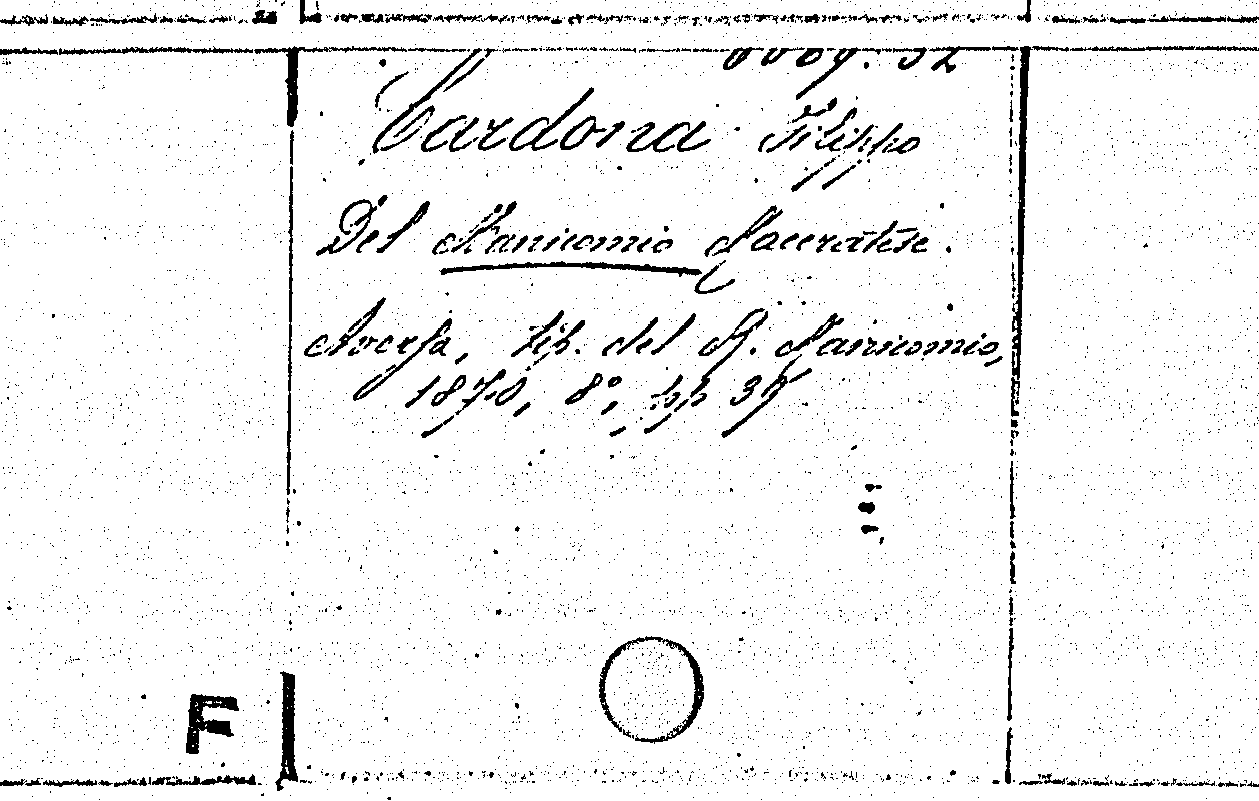 Cardona Filippo
Del Manicomio Maceratese.
Aversa, tip. del R. Manicomio,
1870, 8°, pp 37
F